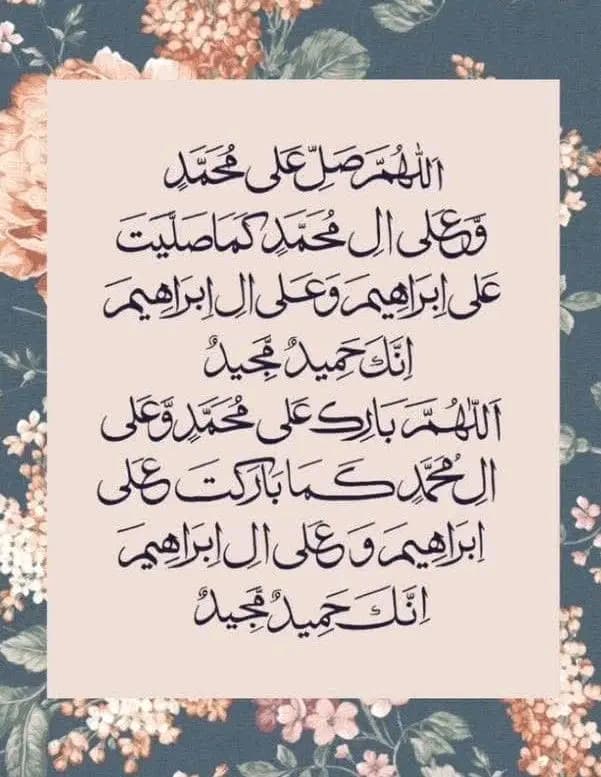 اَللّٰهُمَّ صَلِّ عَلٰى مُحَمَّدٍ
وَّعَلٰى اٰلِ مُحَمَّدٍ كَمَا صَلَّيْتَ
عَلٰى اِبْرَاهِيْمَ وَعَلٰى اٰلِ اِبْرَاهِيْمَ
اِنَّكَ حَمِيْدٌ مَّجِيْدٌ
اَللّٰهُمَّ بَارِكْ عَلٰى مُحَمَّدٍ وَّعَلٰى
اٰلِ مُحَمَّدٍ كَمَا بَارَكْتَ عَلٰى
اِبْرَاهِيْمَ وَعَلٰى اٰلِ اِبْرَاهِيْمَ
اِنَّكَ حَمِيْدٌ مَّجِيْدٌ